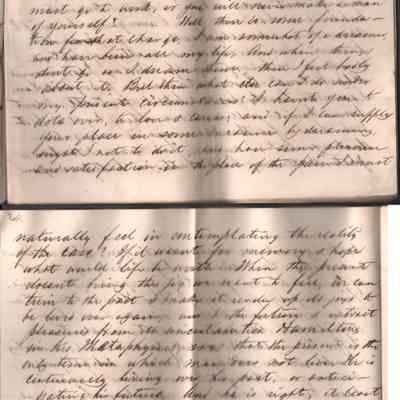 must go to work, or you will never make a man
of yourself! Well there is some founda-
tion for that charge, I am somewhat of a dreamer,
and have been all my life, And when things
don't go as I dream then I feel badly
about it, But then what else can I do under
my present circumstances? I havent you to
dote over, to love & caress, and if I can supply
your place in some measure by dreaming,
ought I not to do it, and have some pleasure
and satisfaction in the place of the pain I cannot
naturally feel in contemplating the reality
of the case? If it wasnt for memory & hope
what would life be worth. When the present
doesnt bring the joy we want to feel, we can
turn to the past & make it render up its joys to
be lived over again, and to the future & extract
pleasures from its Hamilton
in his Metaphysics says that the present is the
only time in which man does not live. He is
continually living over his past, or antici-
pating his future. And he is right, at least